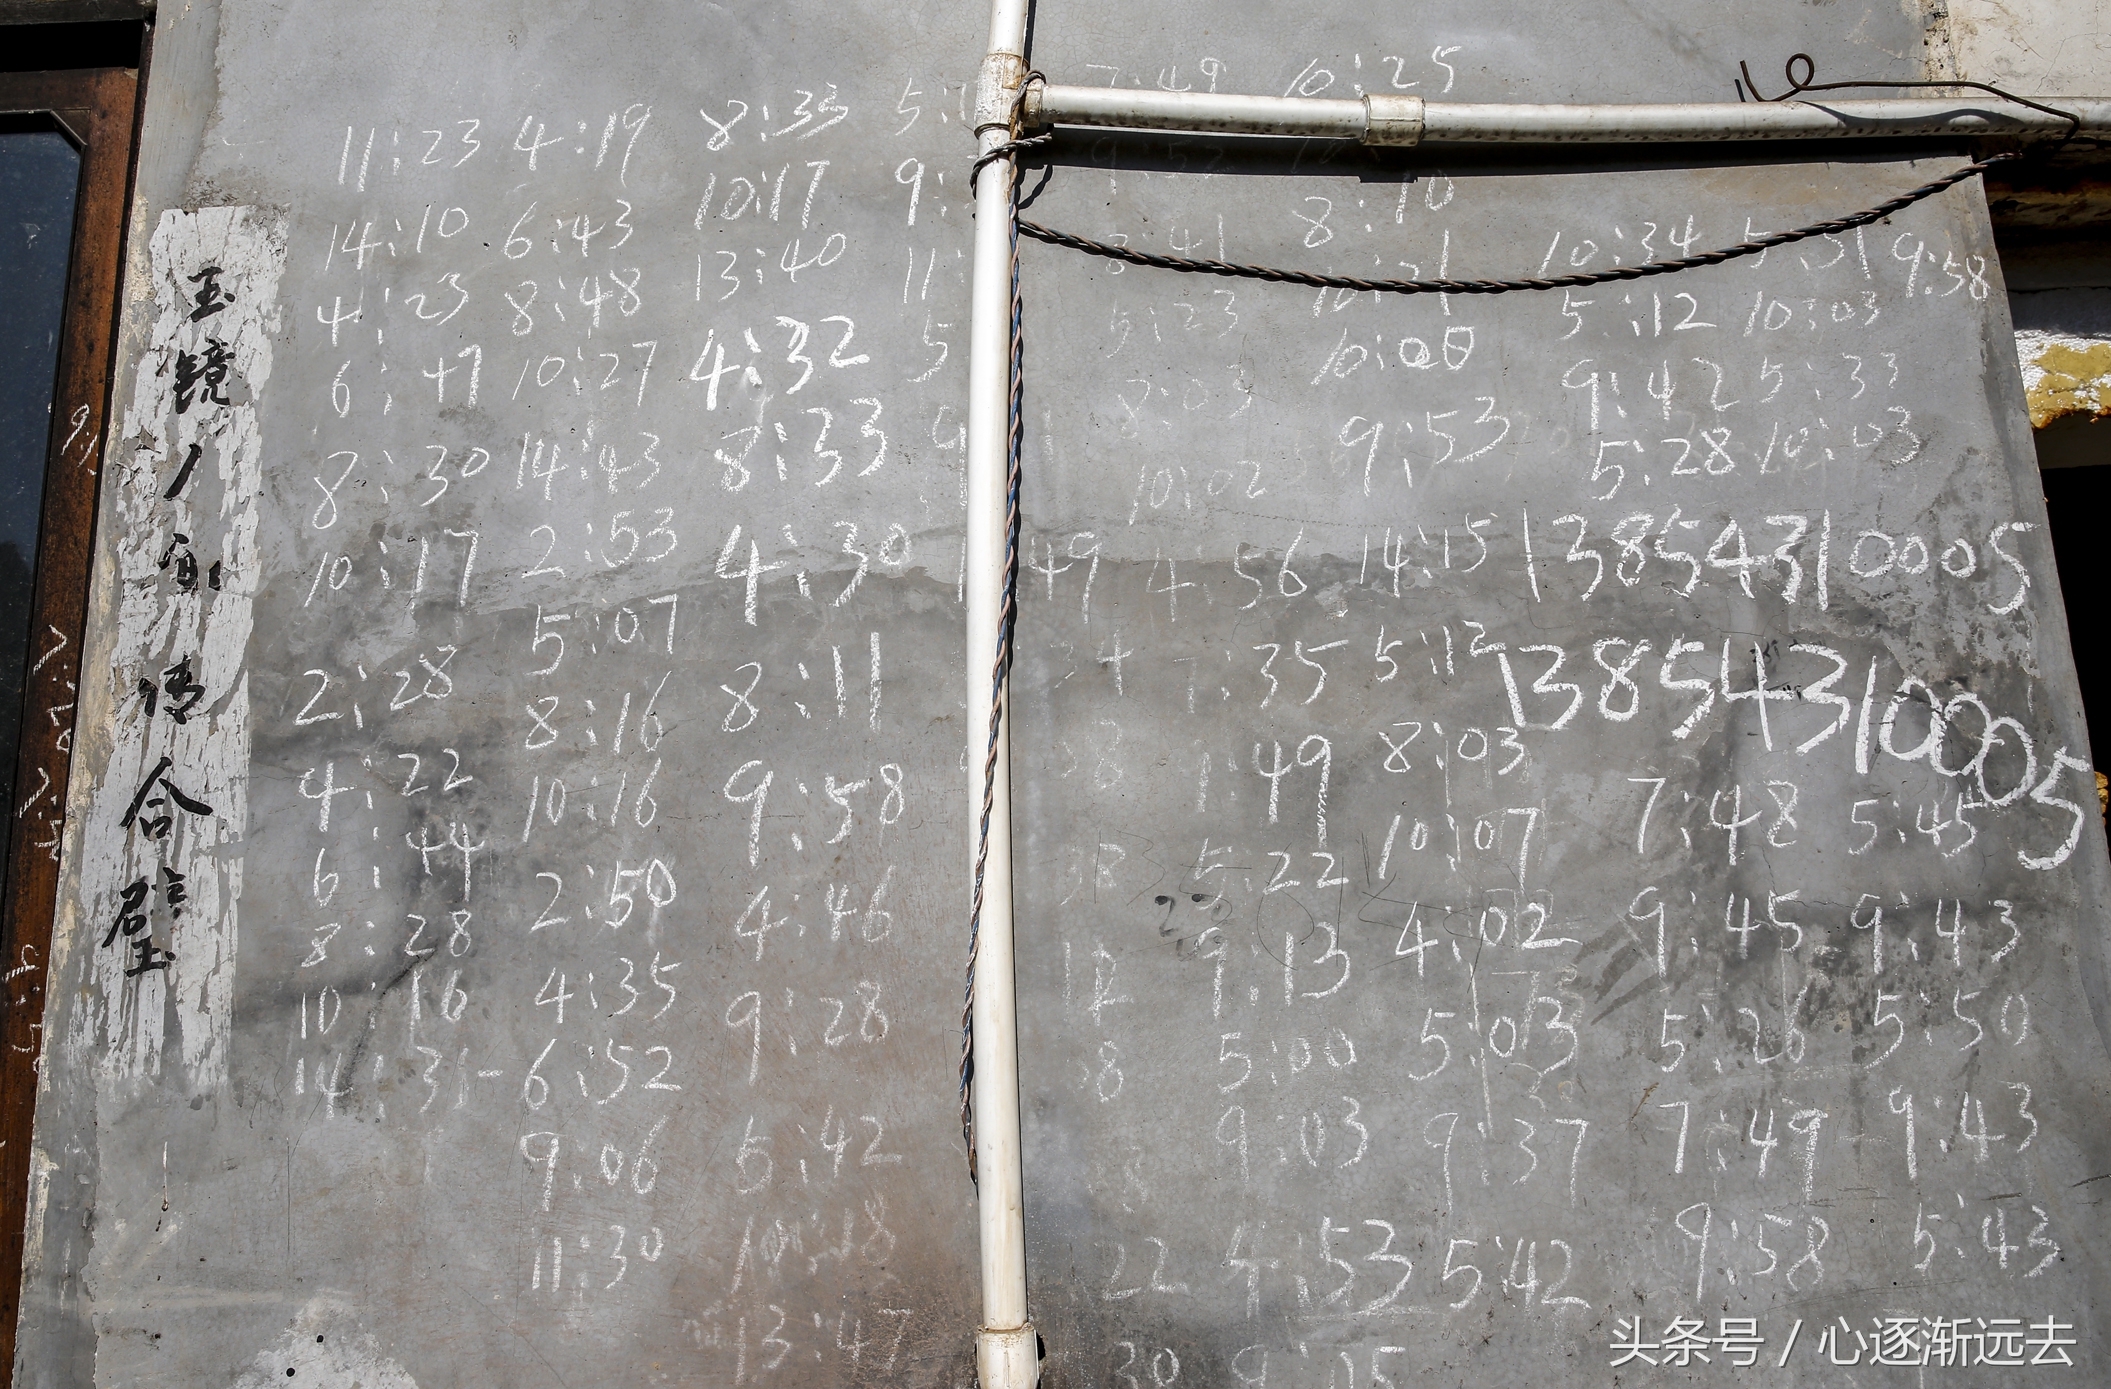 11:23
14:10
4:23
6:47
8:30
10:17
2:28
4:22
6:44
8:28
10:16
14:31-
4:19
6:43
8:48
10:27
14:43
2:53
5:07
8:16
10:16
2:50
4:35
6:52
9:06
11:30
8:33
10:17
13:40
4:32
8:33
4:30
8:11
9:58
4:46
9:28
6:42
10:18
13:47
5:
9:
11:
5
7:49
9:52
8:41
5:23
8:03
10:02
49
34
38
8
22
30
4:56
7:35
1:49
5:22
9:13
5:00
9:03
4:53
10:25
8:10
9:53
14:15
5:12
8:03
10:07
4:02
5:03
9:37
5:42
10:34
5:12
9:42
5:28
13854310005
13854310005
7:48
9:45
5:26
7:49
9:58
5:31
10:03
5:33
10:03
5:45
9:43
5:50
9:43
5:43
9:58
玉
镜
人
合
璧
头条号 / 心逐渐远去